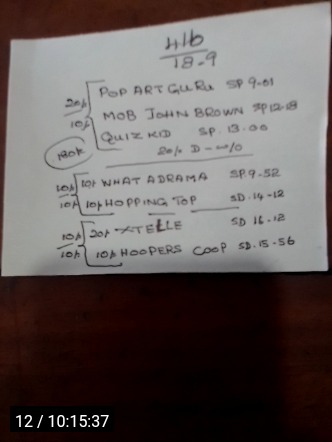 416
18-9
20/- POP ART GURU SP 9-01
10/- MOB JOHN BROWN SP 12-18
QUIZ KID SP. 13.00
20/- D - W/O
10/- 10/- WHAT A DRAMA SP. 9-52
10/- 10/- HOPPING TOP SD. 14-12
10/- 20/- XTELLE SD 16.12
10/- 10/- HOOPERS COOP SD. 15-56
12 / 10:15:37